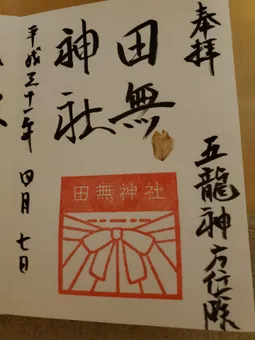 奉拝
五龍神方位除
田無
神社
田無神社
平成三十一年四月七日